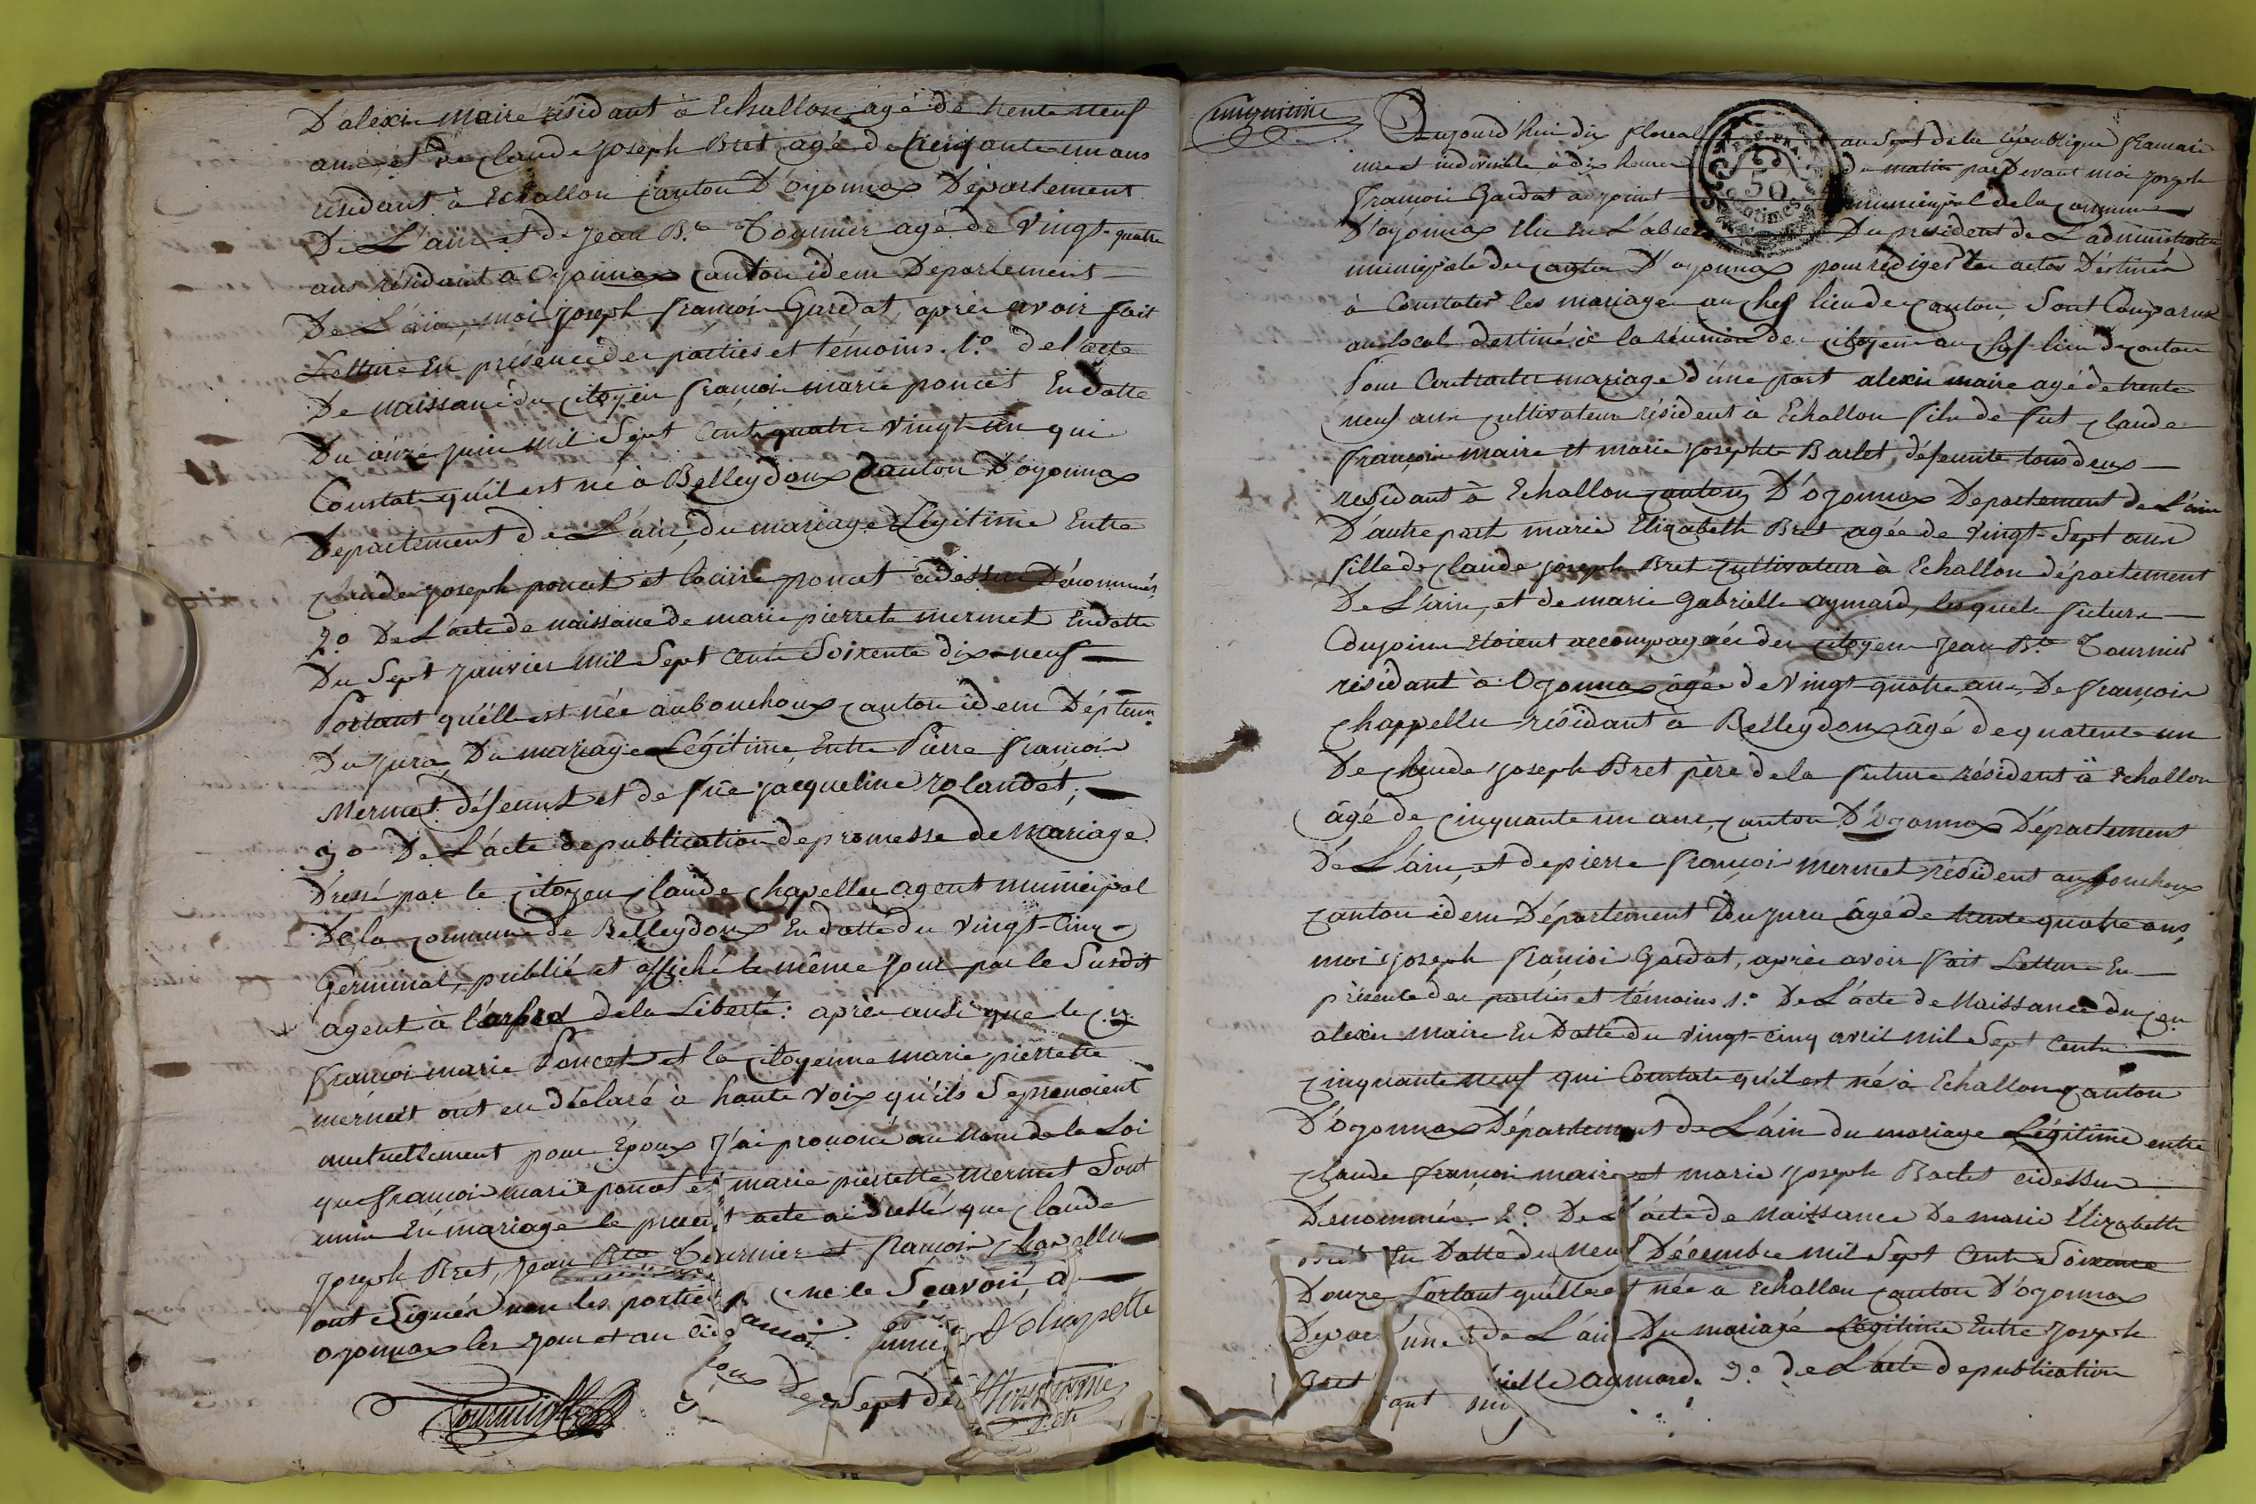 D'alexis maire résidant à Echallon agé de trente neuf
ans, et de Claude Joseph Bret agé de Cinquante un ans
résidant à Echallon Canton D'oyonnax Département
De L'ain et de Jean B.te Tournier agé de Vingt-quatre
ans résidant à Oyonnax Canton idem Département
De L'ain, moi joseph françois Gardat, après avoir fait
Lecture En présence des parties et témoins. 1.º de l'acte
De naissance du citoyen françois marie poncet En datte
Du onze juin mil Sept Cent quatre vingt un qui
Constate qu'il est né à Belleydoux Canton D'oyonnax
Département de L'ain, du mariage Légitime Entre
Claude joseph poncet et poncet cidessus Dénommés
2.º De L'acte de naissance de marie pierrette mermet En datte
Du Sept Janvier mil Sept Cent Soixente dix-neuf
Portant qu'elle est née aubouchoux canton idem
Du Jura, Du mariage Légitime, Entre Pierre françois
Mermet défeunt et de füe jacqueline rolandet,
3.º De L'acte de publication de promesse de Mariage
Dressé par le Citoyen Claude Chapellu agent municipal
De la commune de Belleydoux En datte du vingt-Cinq
Germinal, publié et affiché le même jour par le Susdit
agent à l'arbre de la Liberté: après aussi que le
françois marie Poncet et la citoyenne marie pierrette
mermet ont eu déclaré à haute Voix qu'ils Se prenoient
mutuellement pour Epoux J'ai prononcé au nom de la Loi
que françois marie poncet et marie pierrette mermet Sont
unis En mariage le present acte ai dressé que Claude
Joseph Bret, Jean Bte Tournier et françois Chapellu
ont Signés non les parties ne le Sçavoir, à
oyonnax les jour et an
Sept
Tournier
Aujourd'hui dix floreal an Sept de la république française
une et indivisible à dix heures du matin pardevant moi joseph
françois Gardat adjoint municipal de la commune
D'oyonnax Elu En L'absence Du président de L'administration
municipale du Canton D'oyonnax pour rédiger les actes Destinés
à Constater les mariages au chef lieu de canton, Sont Comparus
au local destiné à la réunion des citoyens au chef-lieu de canton
Pour Contracter mariage d'une part alexis maire agé de trente
neuf ans cultivateur résident à Echallon fils de fut Claude
françois maire et marie josephte Barlet, défeunte tous deux
residant à Echallon canton D'oyonnax Département de L'ain
D'autre part marie Elizabeth Bret agée de vingt-Sept ans
fille de Claude joseph Bret cultivateur à Echallon département
De L'ain, et de marie Gabrielle aymard, lesquels futurs
Conjoins Etoient accompagnés des citoyens jean B.te Tournier
résidant à Oyonnax âgée de Vingt-quatre ans, De françois
Chappellu résidant à Belleydoux âgé de quatente un
De Claude joseph Bret père de la future résident à Echallon
âgé de Cinquante un ans, canton D'Oyonnax Département
De L'ain, et de pierre françois mermet résident aux bouchoux
canton idem Département Du jura âgé de trente quatre ans,
moi joseph françois Gardat, après avoir fait Lecture En
présence des parties et témoins 1.º De L'acte de Naissance du
alexis maire En Datte du vingt-cinq avril mil Sept Cents
Cinquante neuf qui Constate qu'il est né à Echallon canton
D'oyonnax Département de L'ain du mariage Légitime entre
Claude françois maire et marie joseph Barlet cidessus
Dénommés. 2.º De L'acte de naissance De marie Elizabeth
Bret En Datte du neuf Décembre mil Sept Cent Soixente
Douze Portant qu'elle est née à Echallon canton D'oyonnax
de L'ain Du mariage Légitime Entre joseph
Bret aymard. 3.º de L'acte de publication
50
centimes